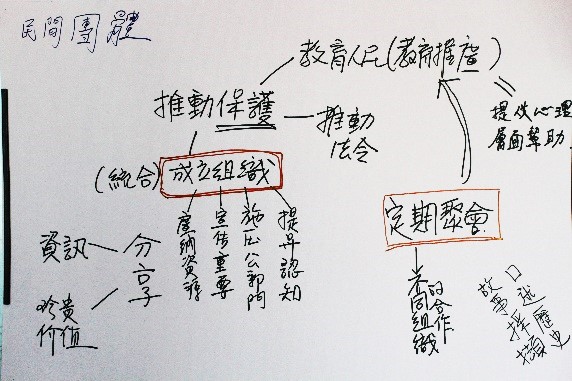 民間團體
教育人民(教育推廣)
推動保護
推動
法令
提供心理
層面幫助
(統合)
成立組織
定期聚會
資訊
分享
珍貴
价值
廣納資源
宣传重要
施压公部門
提昇認知
不同組織
的合作
口述歷史
故事採擷